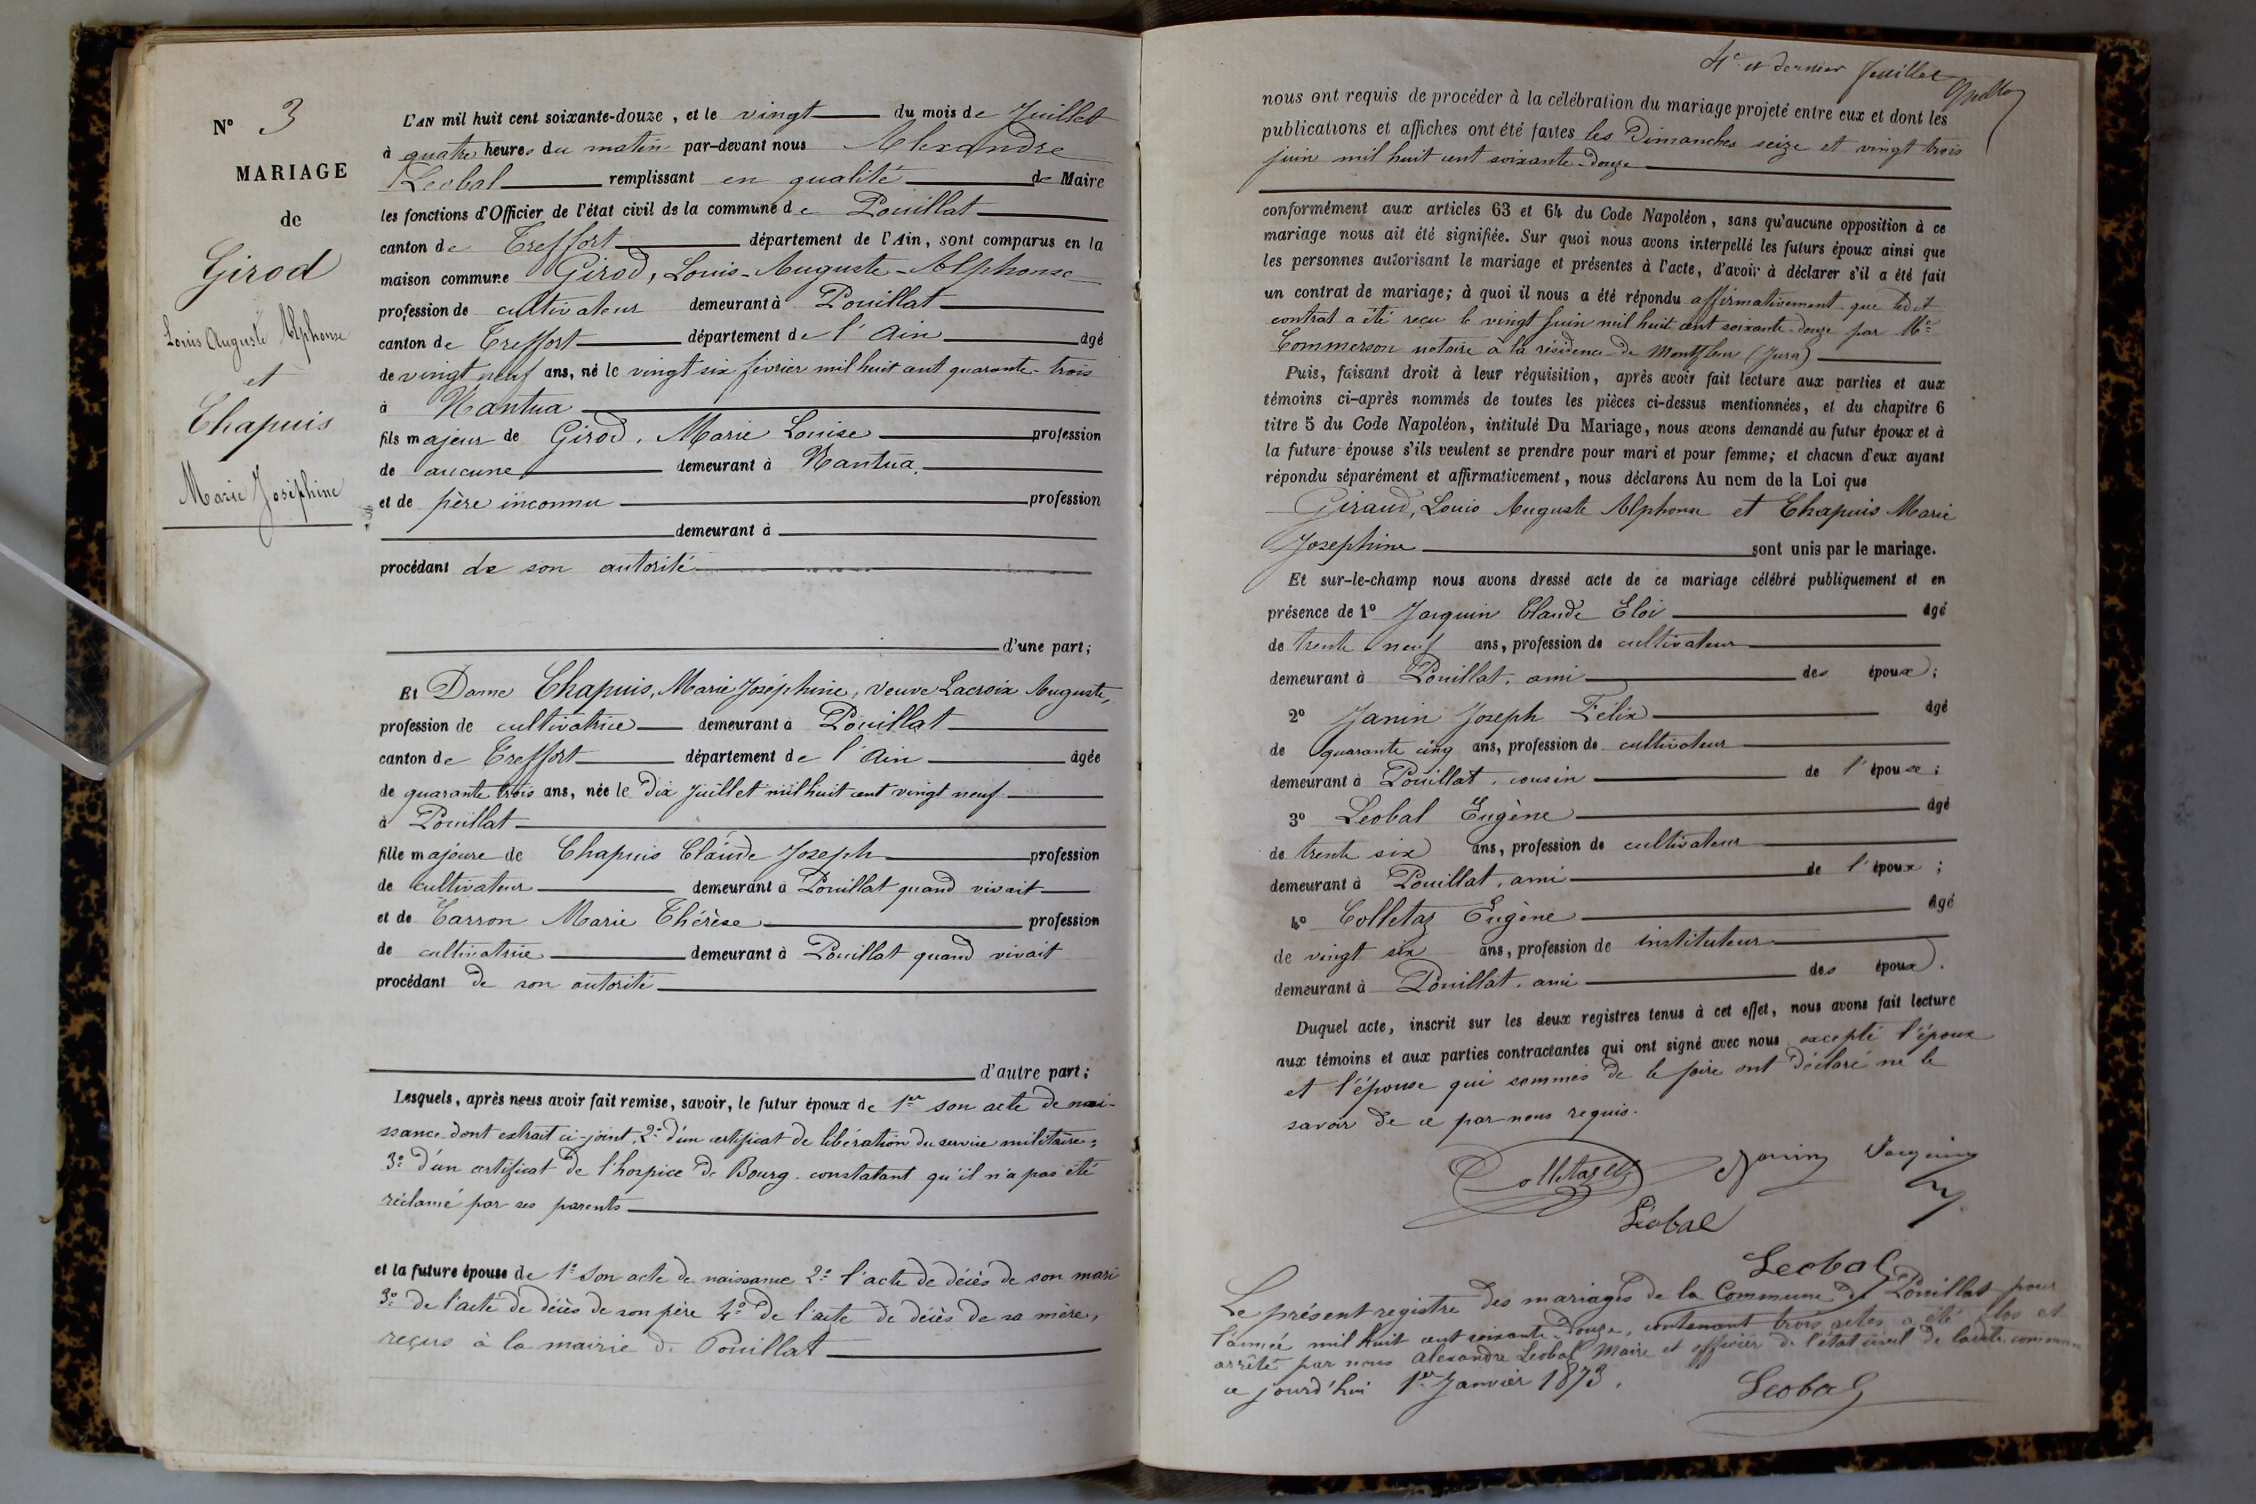 N° 3
MARIAGE
de
Girod
Louis Auguste Alphonse
et
Chapuis
Marie Joséphine
L'AN mil huit cent soixante-douze, et le vingt du mois de Juillet
à quatre heures du matin par-devant nous Alexandre
Leobal remplissant en qualité de Maire
les fonctions d'Officier de l'état civil de la commune de Pouillat
canton de Treffort département de l'Ain, sont comparus en la
maison commune Girod, Louis-Auguste-Alphonse
profession de cultivateur demeurant à Pouillat
canton de Treffort département de l'Ain âgé
de vingt neuf ans, né le vingt six février mil huit cent quarante-trois
à Nantua
fils majeur de Girod, Marie Louise profession
de aucune demeurant à Nantua.
et de père inconnu profession
demeurant à
procédant de son autorité
d'une part;
Et Dame Chapuis, Marie Joséphine, veuve Lacroix Auguste,
profession de cultivatrice demeurant à Pouillat
canton de Treffort département de l'Ain âgée
de quarante trois ans, née le Dix Juillet mil huit cent vingt neuf
à Pouillat
fille majeure de Chapuis Claude Joseph profession
de cultivateur demeurant à Pouillat quand vivait
et de Carron Marie Thérèse profession
de cultivatrice demeurant à Pouillat quand vivait
procédant de son autorité
d'autre part;
Lesquels, après nous avoir fait remise, savoir, le futur époux de 1er son acte de nai-
ssance dont extrait ci-joint, 2° d'un certificat de libération du service militaire;
3° d'un certificat de l'hospice de Bourg constatant qu'il n'a pas été
réclamé par ses parents
et la future épouse de 1° Son acte de naissance 2° l'acte de décès de son mari
3° de l'acte de décès de son père 4° de l'acte de décès de sa mère,
reçus à la mairie de Pouillat
4e et dernier feuillet
nous ont requis de procéder à la célébration du mariage projeté entre eux et dont les
publications et affiches ont été faites les Dimanches seize et vingt trois
juin mil huit cent soixante-douze
conformément aux articles 63 et 64 du Code Napoléon, sans qu'aucune opposition à ce
mariage nous ait été signifiée. Sur quoi nous avons interpellé les futurs époux ainsi que
les personnes autorisant le mariage et présentes à l'acte, d'avoir à déclarer s'il a été fait
un contrat de mariage; à quoi il nous a été répondu affirmativement que ledit
contrat a été reçu le vingt Juin mil huit cent soixante-douze par Me
Commerson notaire à la résidence de Montfleur (Jura)
Puis, faisant droit à leur réquisition, après avoir fait lecture aux parties et aux
témoins ci-après nommés de toutes les pièces ci-dessus mentionnées, et du chapitre 6
titre 5 du Code Napoléon, intitulé Du Mariage, nous avons demandé au futur époux et à
la future épouse s'ils veulent se prendre pour mari et pour femme; et chacun d'eux ayant
répondu séparément et affirmativement, nous déclarons Au nom de la Loi que
Giraud, Louis Auguste Alphonse et Chapuis Marie
Josephine sont unis par le mariage.
Et sur-le-champ nous avons dressé acte de ce mariage célébré publiquement et en
présence de 1° Jacquin Claude Eloi âgé
de trente neuf ans, profession de cultivateur
demeurant à Pouillat, ami des époux;
2° Janin Joseph Félix âgé
de quarante cinq ans, profession de cultivateur
demeurant à Pouillat, cousin de l'épouse;
3° Leobal Eugène âgé
de trente six ans, profession de cultivateur
demeurant à Pouillat, ami de l'époux;
4° Colletaz Eugène âgé
de vingt six ans, profession de instituteur
demeurant à Pouillat, ami des époux.
Duquel acte, inscrit sur les deux registres tenus à cet effet, nous avons fait lecture
aux témoins et aux parties contractantes qui ont signé avec nous excepté l'époux
et l'épouse qui sommés de le faire ont déclaré ne le
savoir de ce par nous requis.
Colletaz Janin Jacquin
Léobal
Leobal
Le présent registre des mariages de la Commune de Pouillat pour
l'année mil huit cent soixante-douze, contenant trois actes a été clos et
arrêté par nous Alexandre Leobal Maire et officier de l'état civil de ladite commune
ce jourd'hui 1er Janvier 1873.
Leobal